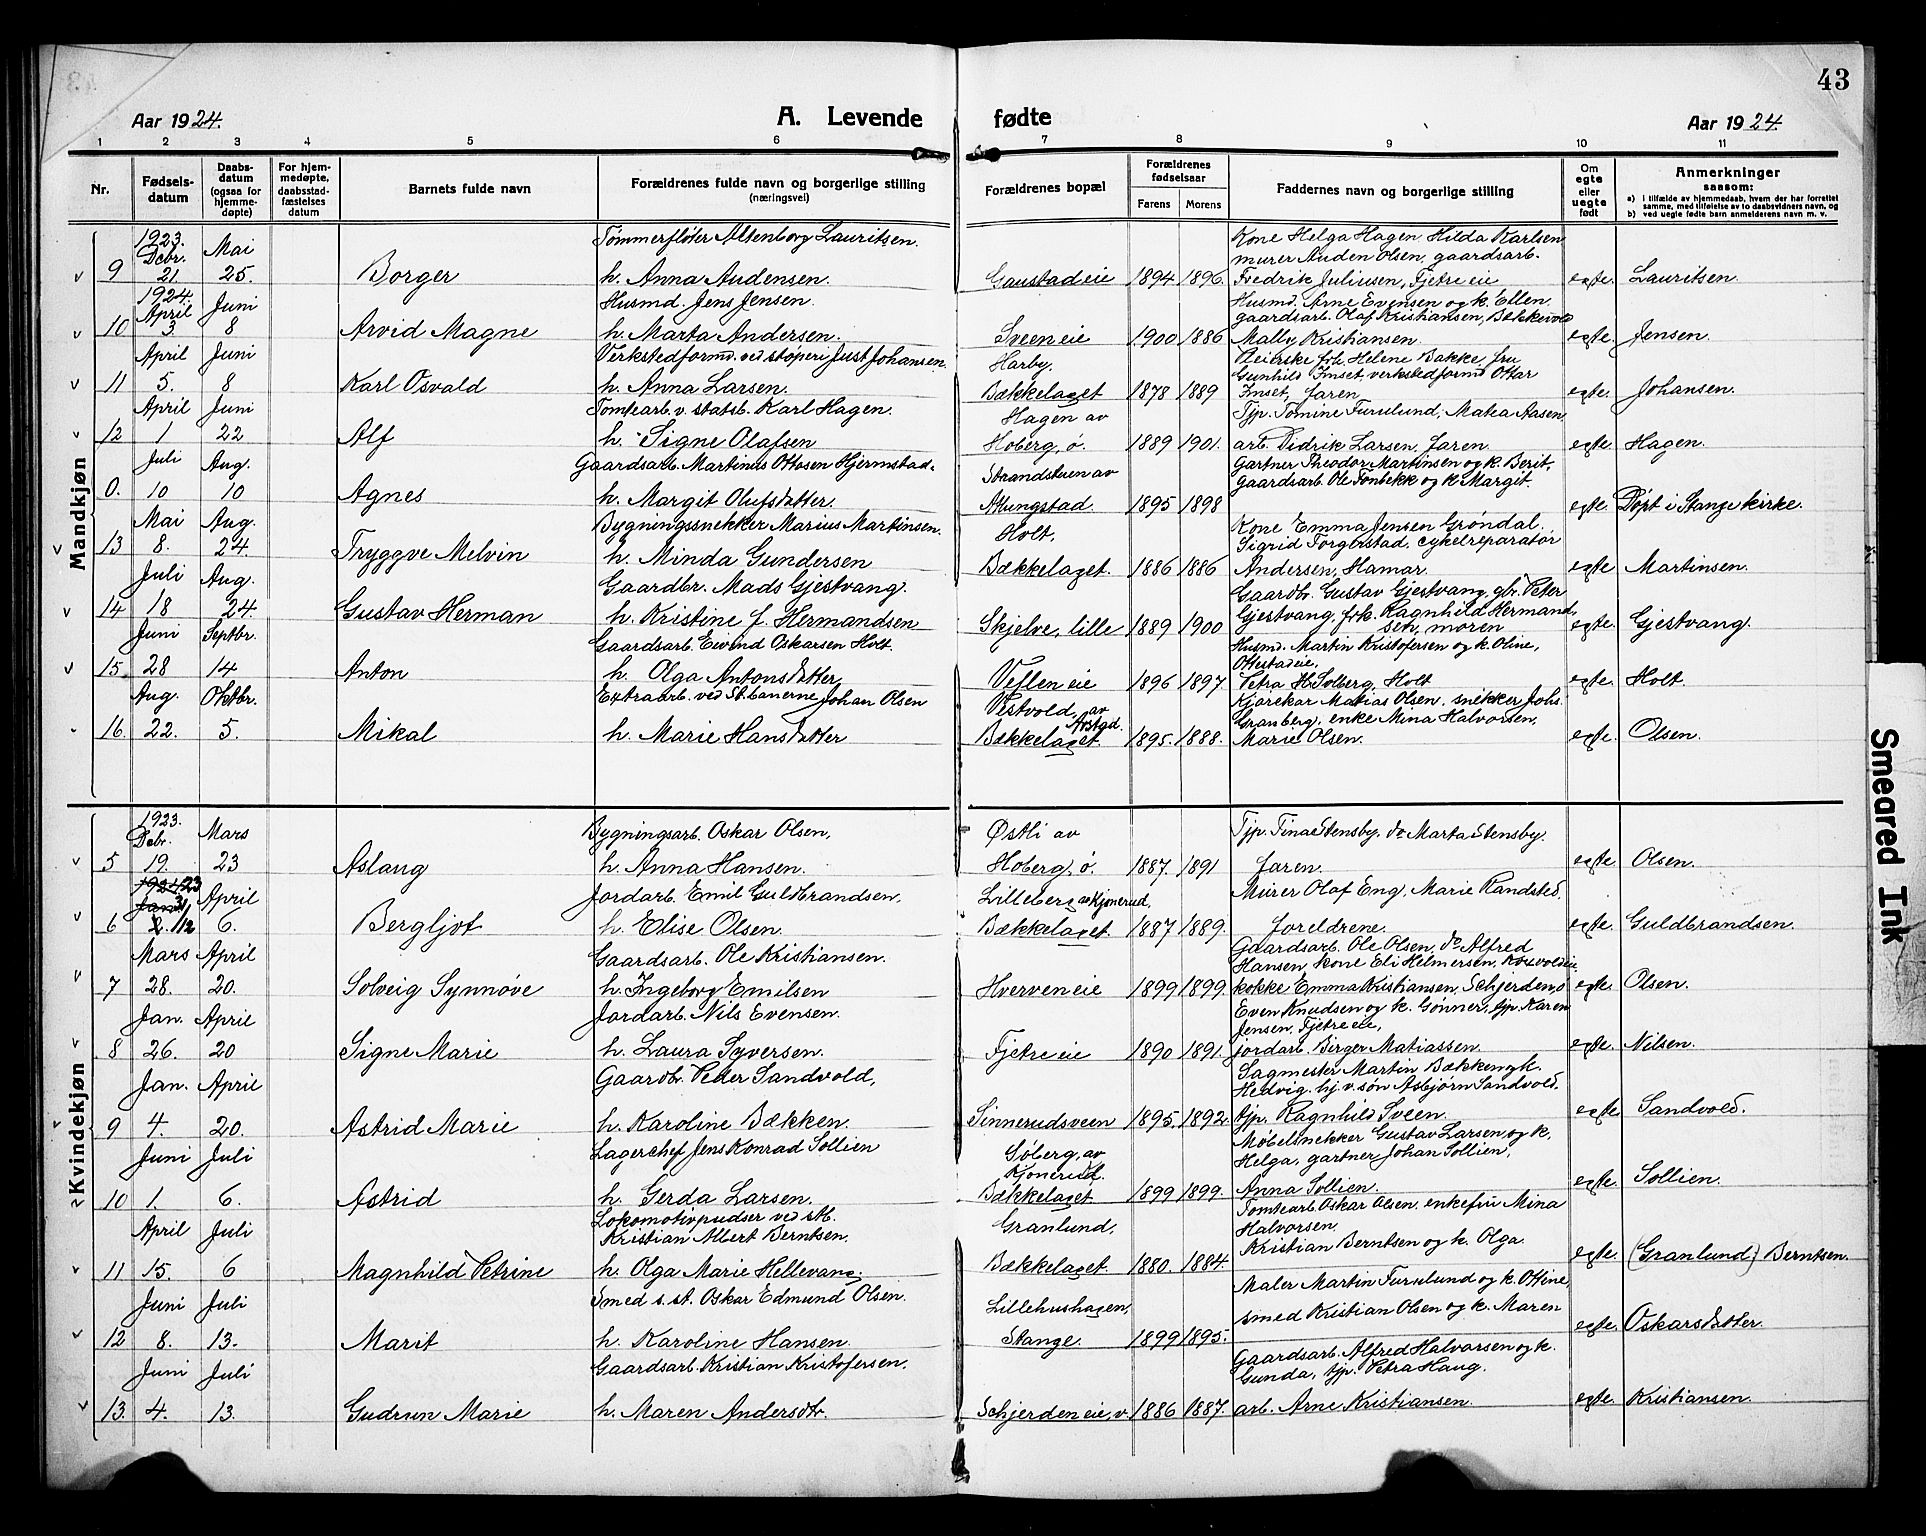 43
Aar 1924. A. Levende fødte Aar 1924.
1 2 3 4 5 6 7 8 9 10 11
Nr. Fødsels-datum Daabs-datum (ogsaa for hjemme-døpte) For hjem-medøpte, daabsstad-fæstelses datum Barnets fulde navn Forældrenes fulde navn og borgerlige stilling (næringsvei) Forældrenes bopæl Forældrenes fødselsaar Farens Morens Faddernes navn og borgerlige stilling Om egte eller uegte født Anmerkninger saasom:
a) i tilfælde av hjemmedaab, hvem der har forrettet samme, med tilføielse av to daabsvidners navn, og
b) ved uegte fødte barn anmelderens navn m. v.
Mandkjøn
9 1923. Debr. 21. Mai 25. Borger Tømmerfløter Altenborg Lauritsen. h. Anna Audensen. Gaustadeie 1894 1896. Kone Helga Hagen, Hilda Karlsen, murer Auden Olsen, gaardsarb. Fredrik Juliusen, Fjetre eie egte. Lauritsen.
10 1924. April 3. Juni 8 Arvid Magne Husmd. Jens Jensen. h. Marta Andersen. Sveen eie 1900 1886 Husmd. Arne Evensen og k. Ellen, gaardsarb. Olaf Kristiansen, Mally Kristiansen. egte. Jensen.
11 April 5. Juni 8 Karl Osvald Verkstedformd. ved støperi Just Johansen. h. Anna Larsen. Harby, Bækkelaget 1878 1889 frk. Helene Bakke, fru Gunhild Imset, verkstedformd Ottar Imset, faren egte. Johansen.
12 April 1 Juni 22 Alf Tomtearb. v. statsb. Karl Hagen. h. Signe Olafsen Hagen av Hoberg, ø. 1889 1901. Tjp. Tomine Furulund, Matea Aasen, arb. Didrik Larsen, faren. egte. Hagen.
0. Juli 10 Aug. 10 Agnes Gaardsarb. Martinus Ottosen Hjermstad. h. Margit Olufsdatter. Strandstuen av Atlungstad. 1895 1898 Gartner Theodor Martinsen og k. Berit, gaardsarb. Ole Fonbekk og k Margit. egte. Døpt i Stange kirke.
13 Mai 8. Aug. 24 Tryggve Melvin Bygningssnekker Marius Martinsen. h. Minda Gundersen Holt, Bækkelaget. 1886 1886 Kone Emma Jensen Grøndal, Sigrid Torgerstad, cykelreparatør Andersen, Hamar. egte Martinsen.
14 Juli 18 Aug. 24. Gustav Herman Gaardbr. Mads Gjestvang. h. Kristine f. Hermandsen Skjelve, lille 1889 1900 Gaardbr. Gustav Gjestvang, gbr. Peter Gjestvang, frk. Ragnhild Hermandsen, moren egte. Gjestvang.
15 Juni 28 Septbr. 14 Anton Gaardsarb. Eivind Oskarsen Holt. h. Olga Antonsdatter Veflen eie 1896 1897 Husmd. Martin Kristofersen og k. Oline, Ottestadeie, Petra H. Solberg, Holt egte. Holt.
16. Aug. 22. Oktbr. 5. Mikal Extraarb. ved St.banerne Johan Olsen h. Marie Hansdatter Vestvold, av Bækkelaget. 1895. 1888. Kjørekar Matias Olsen, snikker Johs. Granberg, enke Mina Halvorsen, Marie Olsen. egte. Olsen.
Kvindekjøn
5 1923. Debr. 19. Mars 23 Aslaug Bygningsarb. Oskar Olsen, h. Anna Hansen. Østli av Hoberg, ø. 1887. 1891 Tjp. Tina Stensby, do Marta Stensby. faren. egte Olsen.
6 31/12 23 April 6. Bergljot Jordarb. Emil Guldbrandsen, h. Elise Olsen. Lilleberg av Kjonerud, Bækkelaget. 1887 1889. Murer Olaf Eng, Marie Randsted, foreldrene. egte Guldbrandsen.
7 Mars 28. April 20. Solveig Synnøve Gaardsarb. Ole Kristiansen. h. Ingeborg Emilsen Hverven eie 1899 1899 Gaardsarb. Ole Olsen, do Alfred Hansen, kone Eli Helmersen, kokke Emma Kristiansen, Schjerden, ø egte Olsen.
8 Jan. 26. April 20 Signe Marie Jordarb. Nils Evensen. h. Laura Syversen. Fjetre eie 1890 1891. Even Knudsen og k. Gønner, tjp. Karen Jensen, Fjetre eie, jordarb. Birger Matiassen. egte Nilsen.
9 Jan. 4. April 20. Astrid Marie Gaardbr. Peder Sandvold, h. Karoline Bækken. Sinnerudsveen 1895. 1892. Sagmester Martin Bækken og k. Hedvig. hj.v. søn Asbjørn Sandvold. tjp. Ragnhild Sveen. egte Sandvold.
10 Juni 1. Juli 6. Astrid Lagerchef Jens Konrad Sollien h. Gerda Larsen. Søberg, av Kjonerud. Bækkelaget 1899 1899. Møbelsnekker Gustav Larsen og k. Helga, gartner Johan Sollien, Anna Sollien. egte. Sollien.
11 April 15. Juli 6 Magnhild Petrine Lokomotivpudser ved stb. Kristian Albert Berntsen. h. Olga Marie Hellevang. Granlund, Bækkelaget. 1880. 1884. Tomtearb. Oskar Olsen, enkefru Mina Halvorsen, Kristian Berntsen og k. Olga. egte. (Granlund) Berntsen.
12 Juni 8. Juli 13. Marit Smed s. st. Oskar Edmund Olsen. h. Karoline Hansen. Lillehushagen, Stange. 1899 1895. Maler Martin Furulund og k. Ottine, smed Kristian Olsen og k. Maren egte. Oskarsdatter.
13. Juni 4. Juli 13. Gudrun Marie Gaardsarb. Kristian Kristofersen. h. Maren Andersdtr. Schjerden eie, v. 1886 1887. Gaardsarb. Alfred Halvorsen og k. Gunda, tjp. Petra Haug. arb. Arne Kristiansen. egte. Kristiansen.
Smeared Ink